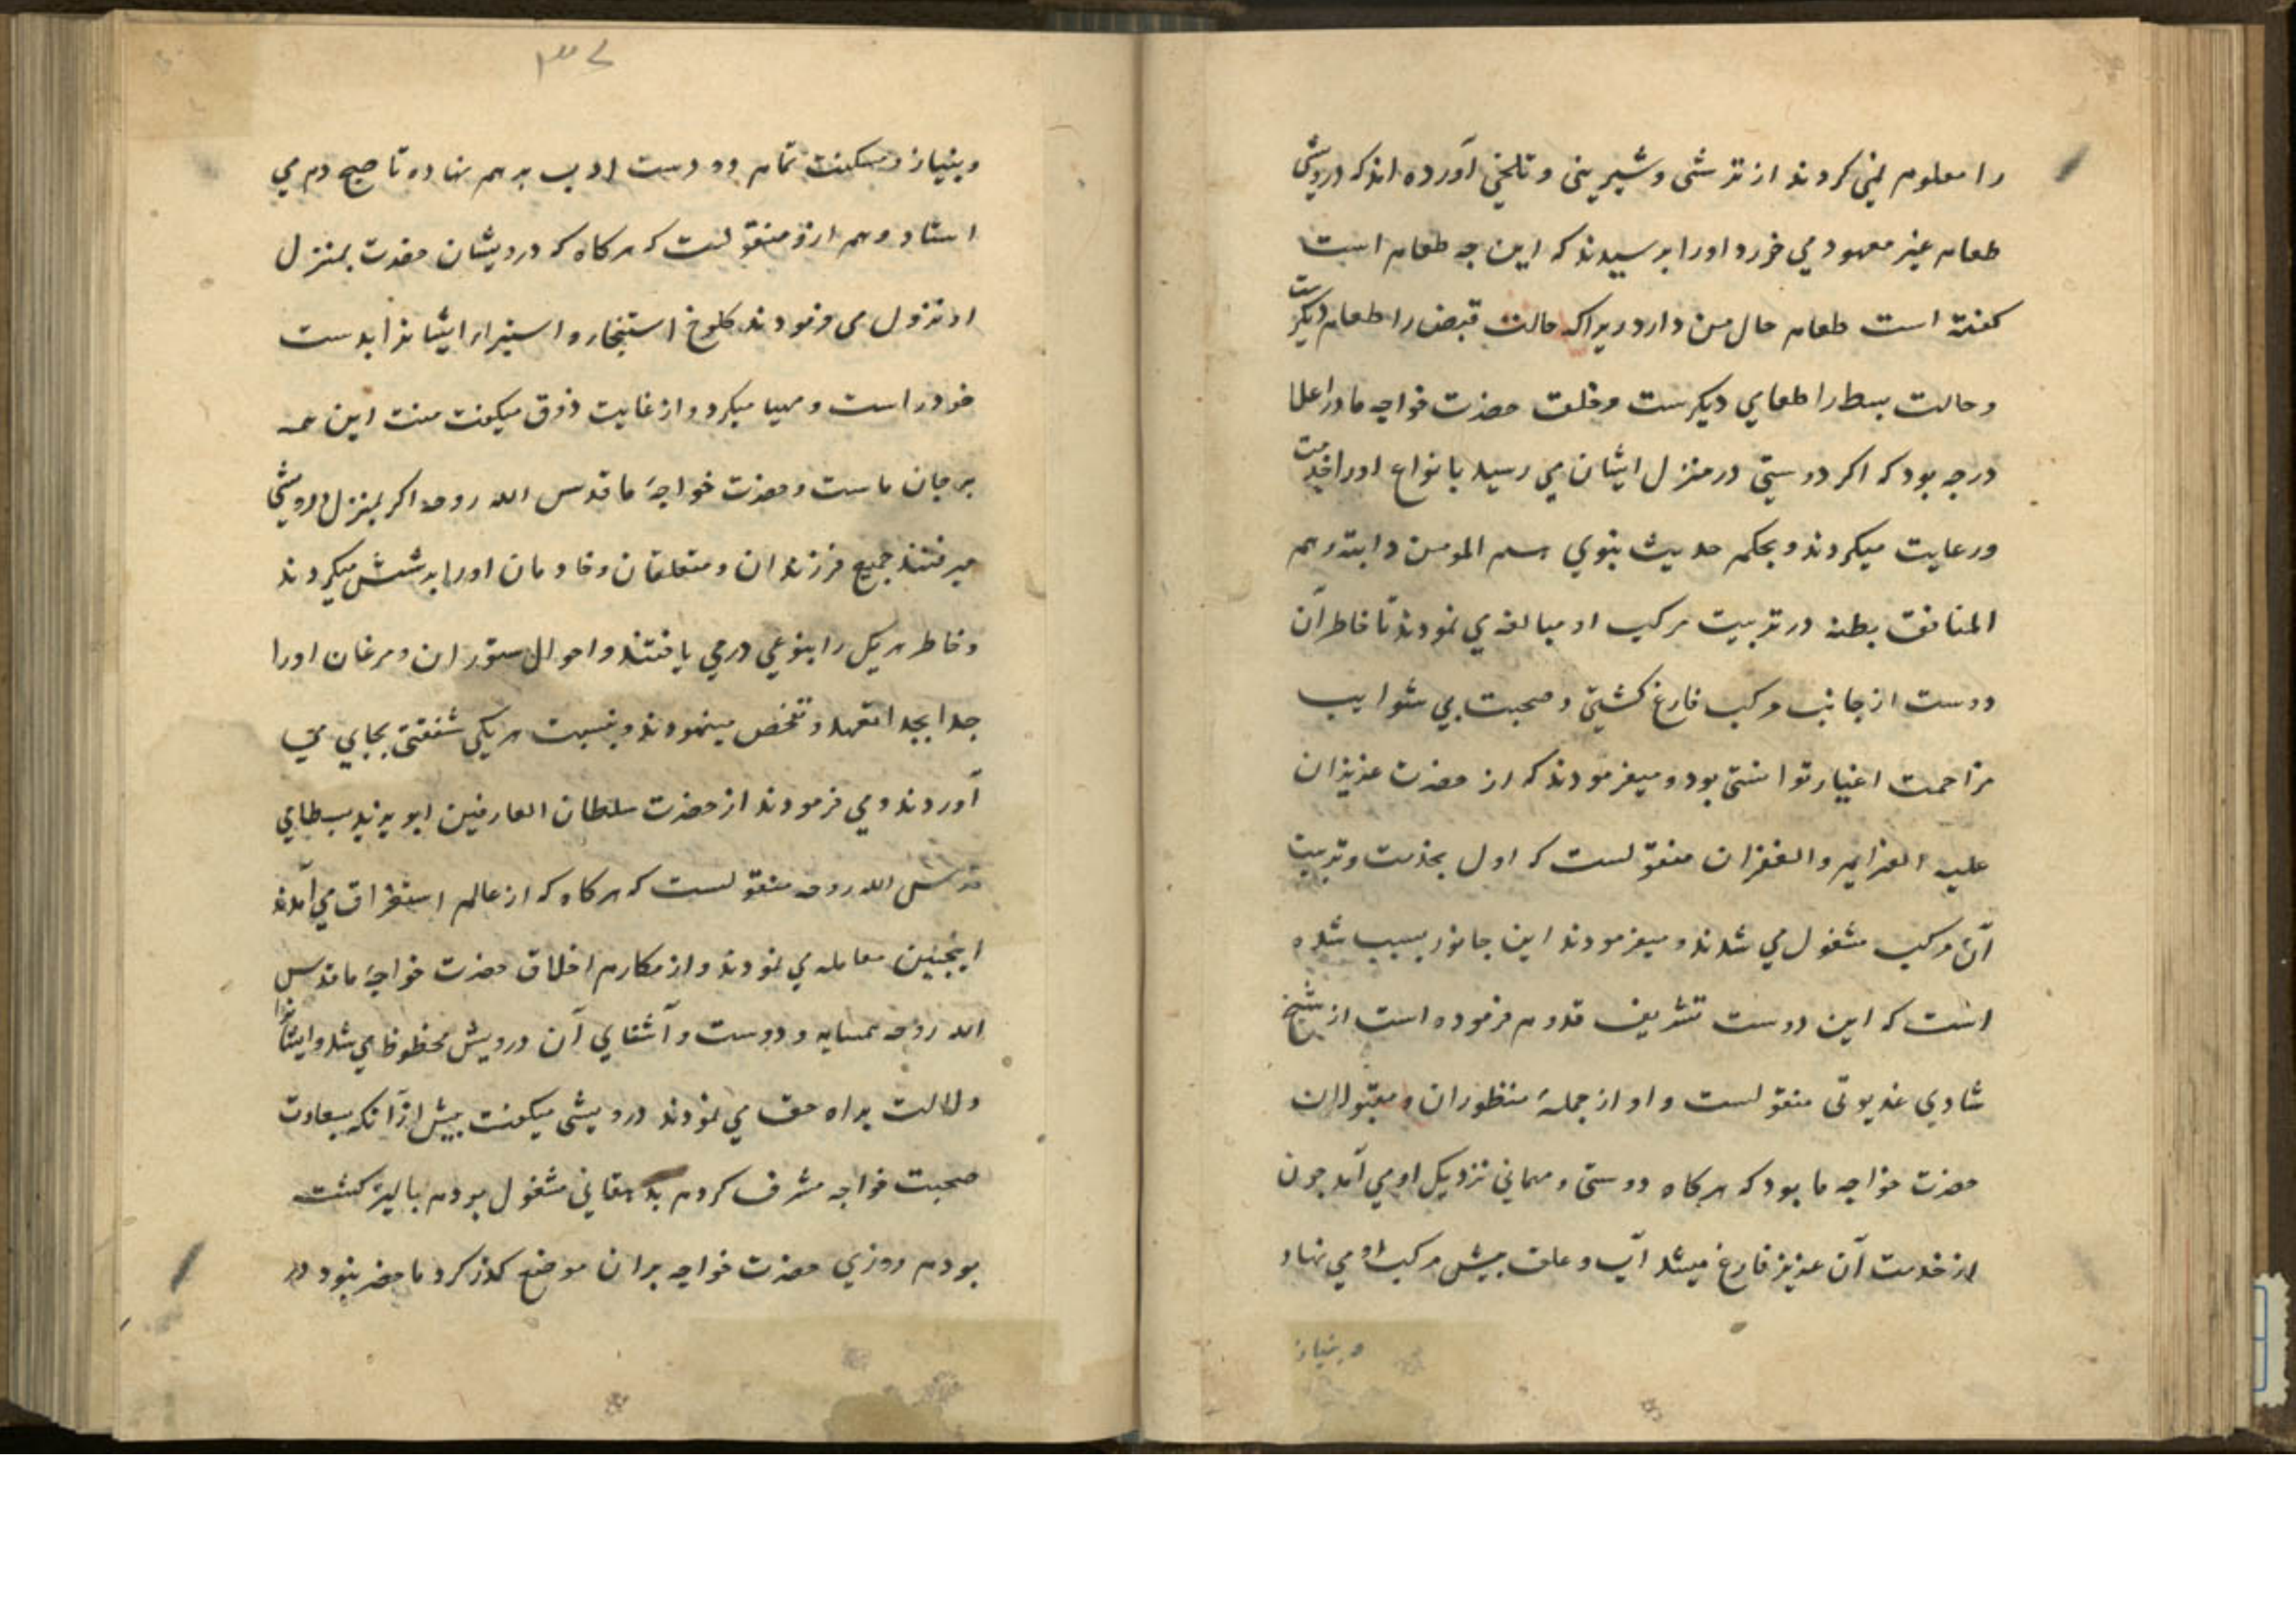 را معلوم نمی کردند از ترشی و شیرینی و تلخی آورده اند که درویشی
طعام غیر معهود می خورد اورا پرسیدند که این چه طعام است
گفته است طعام حال من دارد زیراکه حالت قبض را طعام دیگرست
و حالت بسط را طعامی دیگرست و خلق حضرت خواجه ما در اعلا
درجه بود که اگر دوستی در منزل ایشان می رسید بانواع اورا خدمت
ورعایت میکردند و بحکم حدیث نبوی المومن دابته وهم
المنافق بطنه در تربیت مرکب او مبالغه ی نمودند تا خاطر آن
دوست از جانب مرکب فارغ گشتی و صحبت بی شوایب
مزاحمت اغیار توانستی بود و میفرمودند که از حضرت عزیزان
علیه والغفران منقولست که اول بخدمت وتربیت
آن مرکب مشغول می شدند و میفرمودند این جانور بسبب شده
است که این دوست تشریف قدوم فرموده است از شیخ
شادی غدیوتی منقولست و او از جملهٔ منظوران و مقبولان
حضرت خواجه ما بود که هرکاه دوستی و مهمانی نزدیک او می آمد چون
از خدمت آن عزیز فارغ میشد آب و علف پیش مرکب او می نهاد
و بنیاز
۳۷
و بنیاز و مسکنت تمام دو دست ادب برهم نهاده تا صبح دم می
استاد و هم ازو منقولست که هرکاه که درویشان حضرت بمنزل
او نزول می فرمودند کلوخ استنجا و ایشانرا بدست
خود راست و مهیا میکرد و از غایت ذوق میکفت منت این همه
بر جان ماست و حضرت خواجهٔ ما قدس الله روحه اکر بمنزل درویشی
میرفتند جمیع فرزندان و متعلقان و خادمان اورا پرسش میکردند
و خاطر هریک را بنوعی در می یافتند و احوال ستوران و مرغان اورا
جدا بجدا تعهد و تفحص مینمودند و بنسبت هریکی شفقتی بجای می
آوردند و می فرمودند از حضرت سلطان العارفین ابو یزید بسطامی
قدس الله روحه منقولست که هرکاه که از عالم استغراق می آمدند
اینچنین معامله ی نمودند و از مکارم اخلاق حضرت خواجهٔ ما قدس
الله روحه همسایه و دوست و آشنای آن درویش محظوظ می شد و ایشانرا
دلالت براه حق می نمودند درویشی میکفت پیش از آنکه بسعادت
صحبت خواجه مشرف کردم بدهقانی مشغول بودم پالیز کشته
بودم روزی حضرت خواجه بران موضع کذر کرد ما حضر نبود در